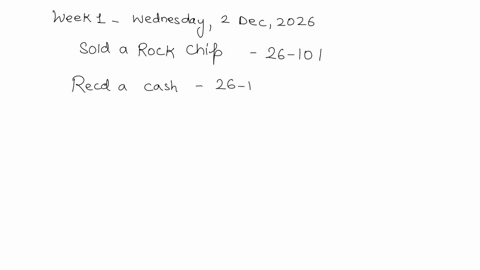 Week 1 - Wednesday, 2 Dec, 2026
Sold a Rock Chip - 26-101
Recd a cash - 26-1